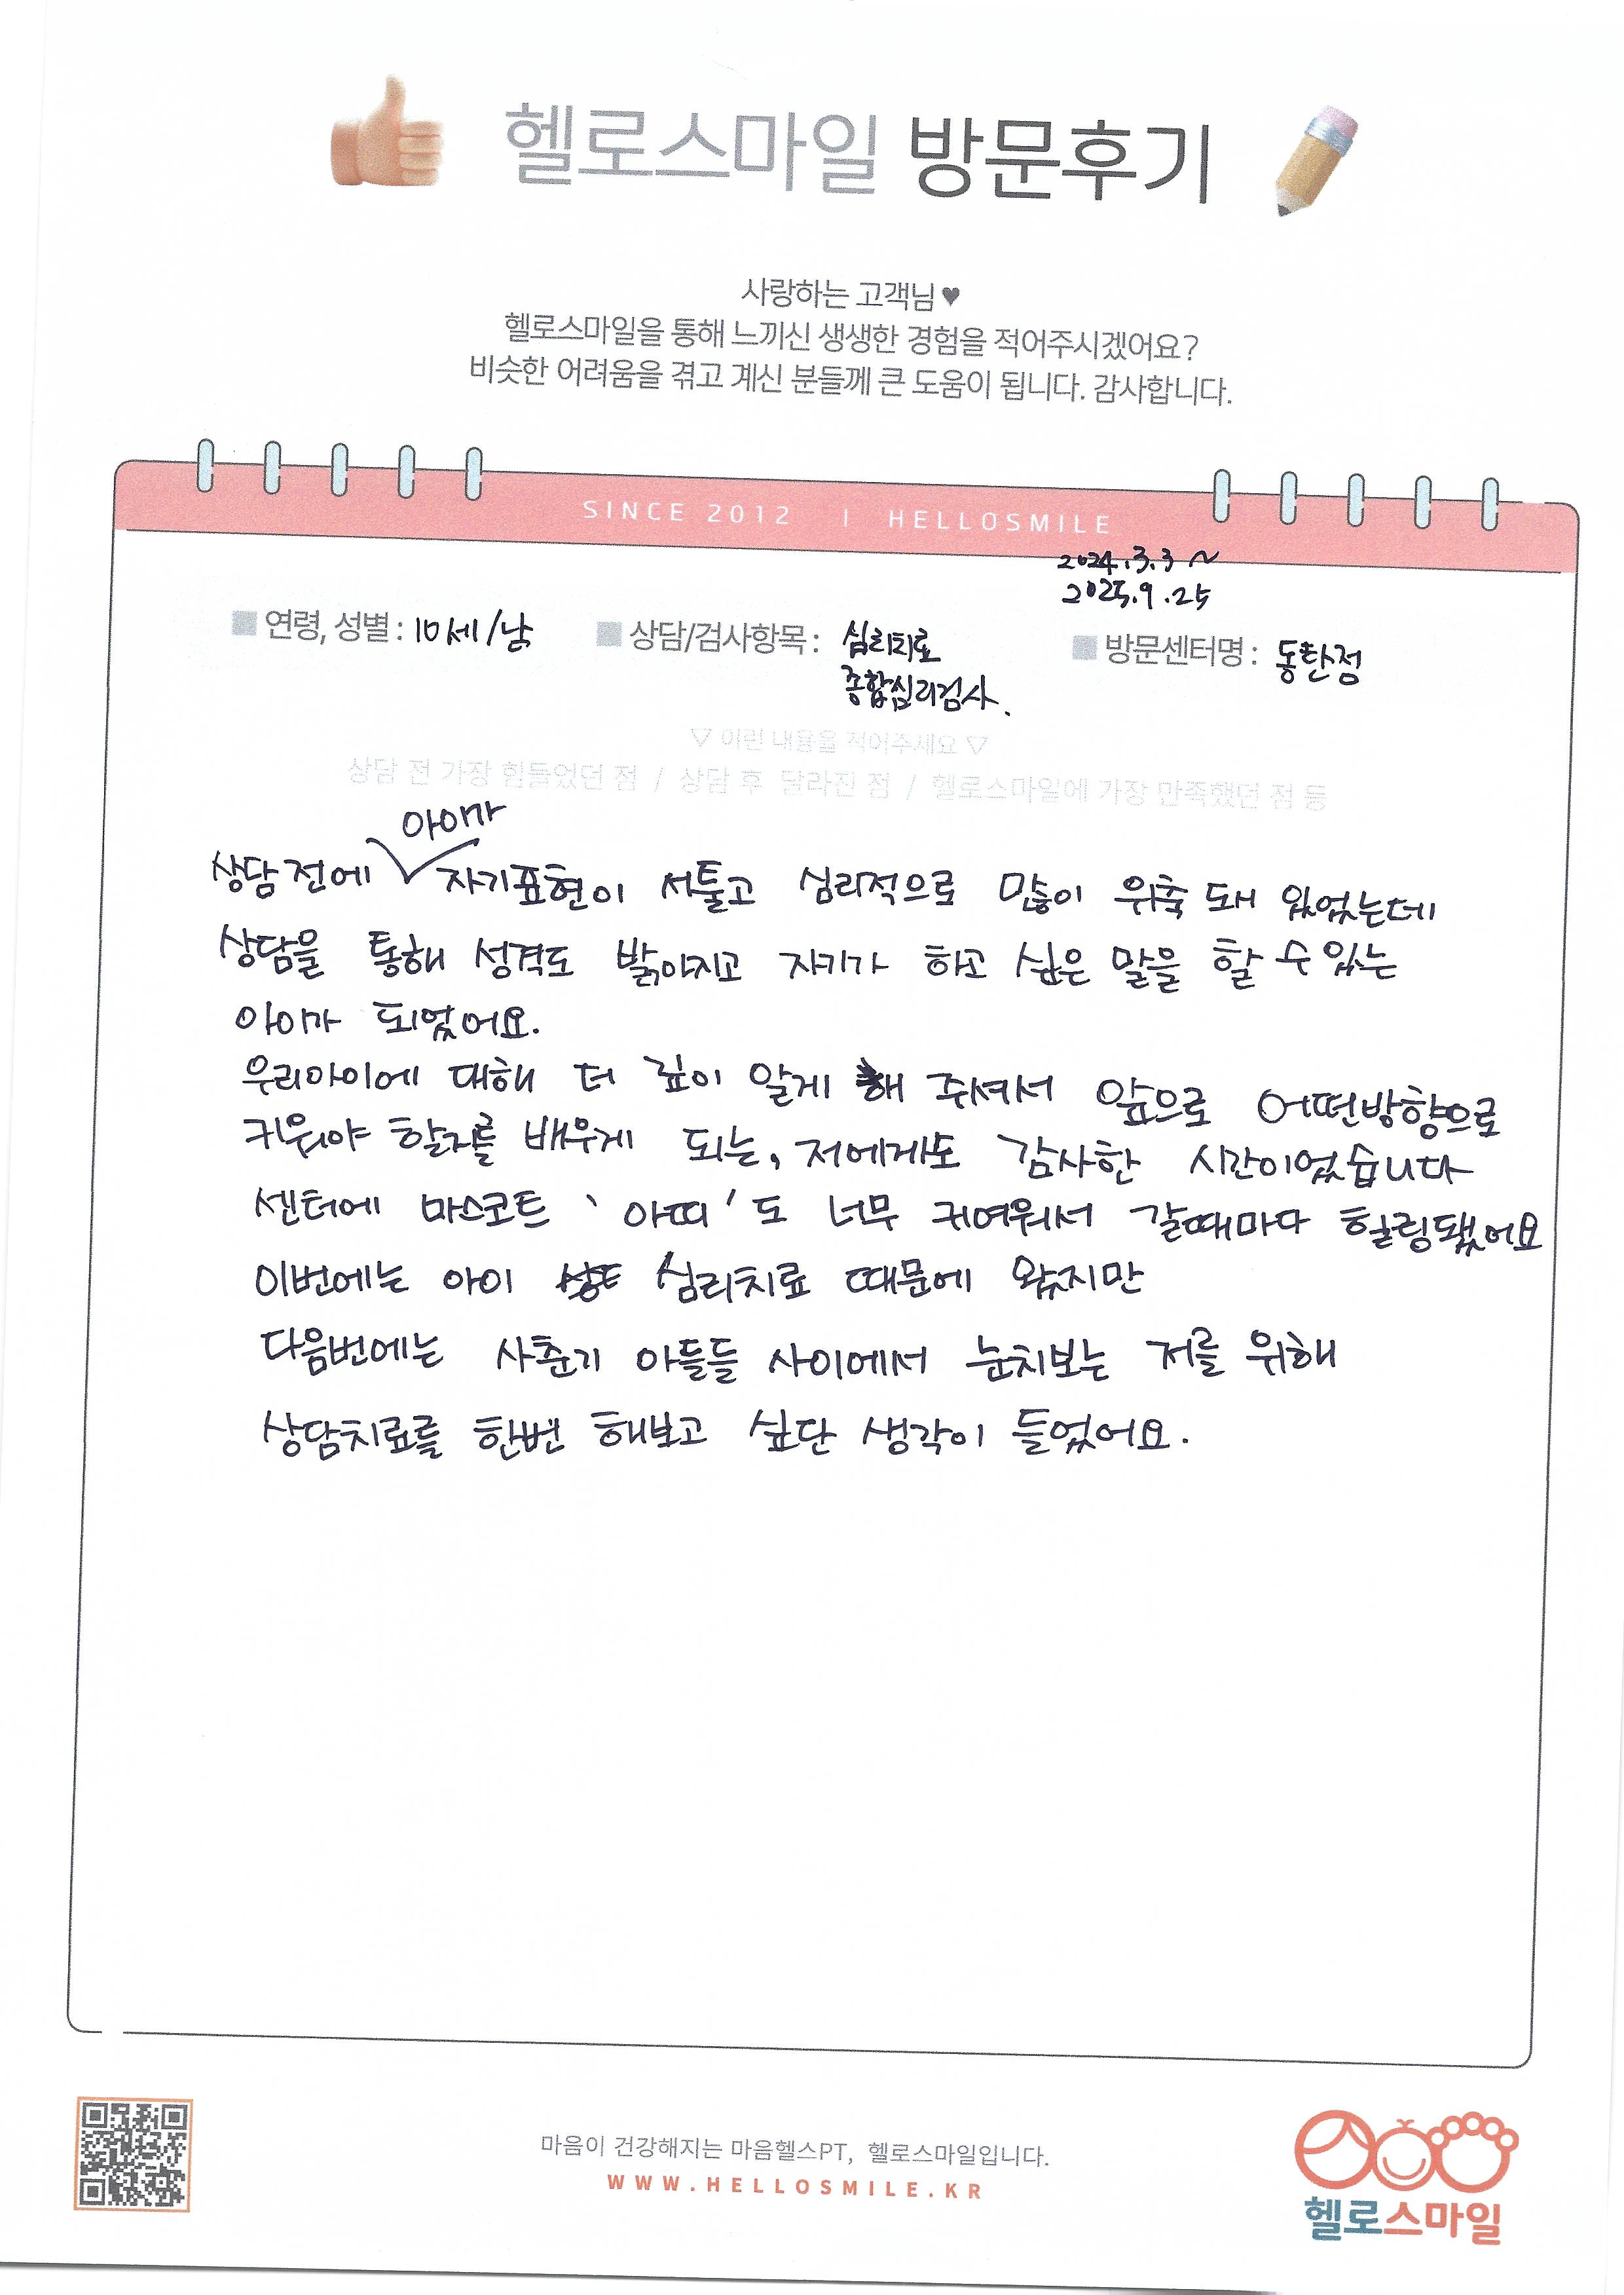 헬로스마일 방문후기
사랑하는 고객님♥
헬로스마일을 통해 느끼신 생생한 경험을 적어주시겠어요?
비슷한 어려움을 겪고 계신 분들께 큰 도움이 됩니다. 감사합니다.
SINCE 2012 | HELLOSMILE
2024.3.3 ~
2025.9.25
연령, 성별 : 10세/남 상담/검사항목 : 심리치료 방문센터명 : 동탄점
종합심리검사.
▽ 이런 내용을 적어주세요 ▽
상담 전 가장 힘들었던 점 / 상담 후 달라진 점 / 헬로스마일에 가장 만족했던 점 등
아이가
상담 전에 자기표현이 서툴고 심리적으로 많이 위축 돼 있었는데
상담을 통해 성격도 밝아지고 자기가 하고 싶은 말을 할 수 있는
아이가 되었어요.
우리아이에 대해 더 깊이 알게 해 주셔서 앞으로 어떤방향으로
키워야 할지를 배우게 되는, 저에게도 감사한 시간이었습니다
센터에 마스코트 '아띠'도 너무 귀여워서 갈때마다 힐링됐어요
이번에는 아이 심리치료 때문에 왔지만
다음번에는 사춘기 아들들 사이에서 눈치보는 저를 위해
상담치료를 한번 해보고 싶단 생각이 들었어요.
마음이 건강해지는 마음헬스PT, 헬로스마일입니다.
WWW.HELLOSMILE.KR
헬로스마일